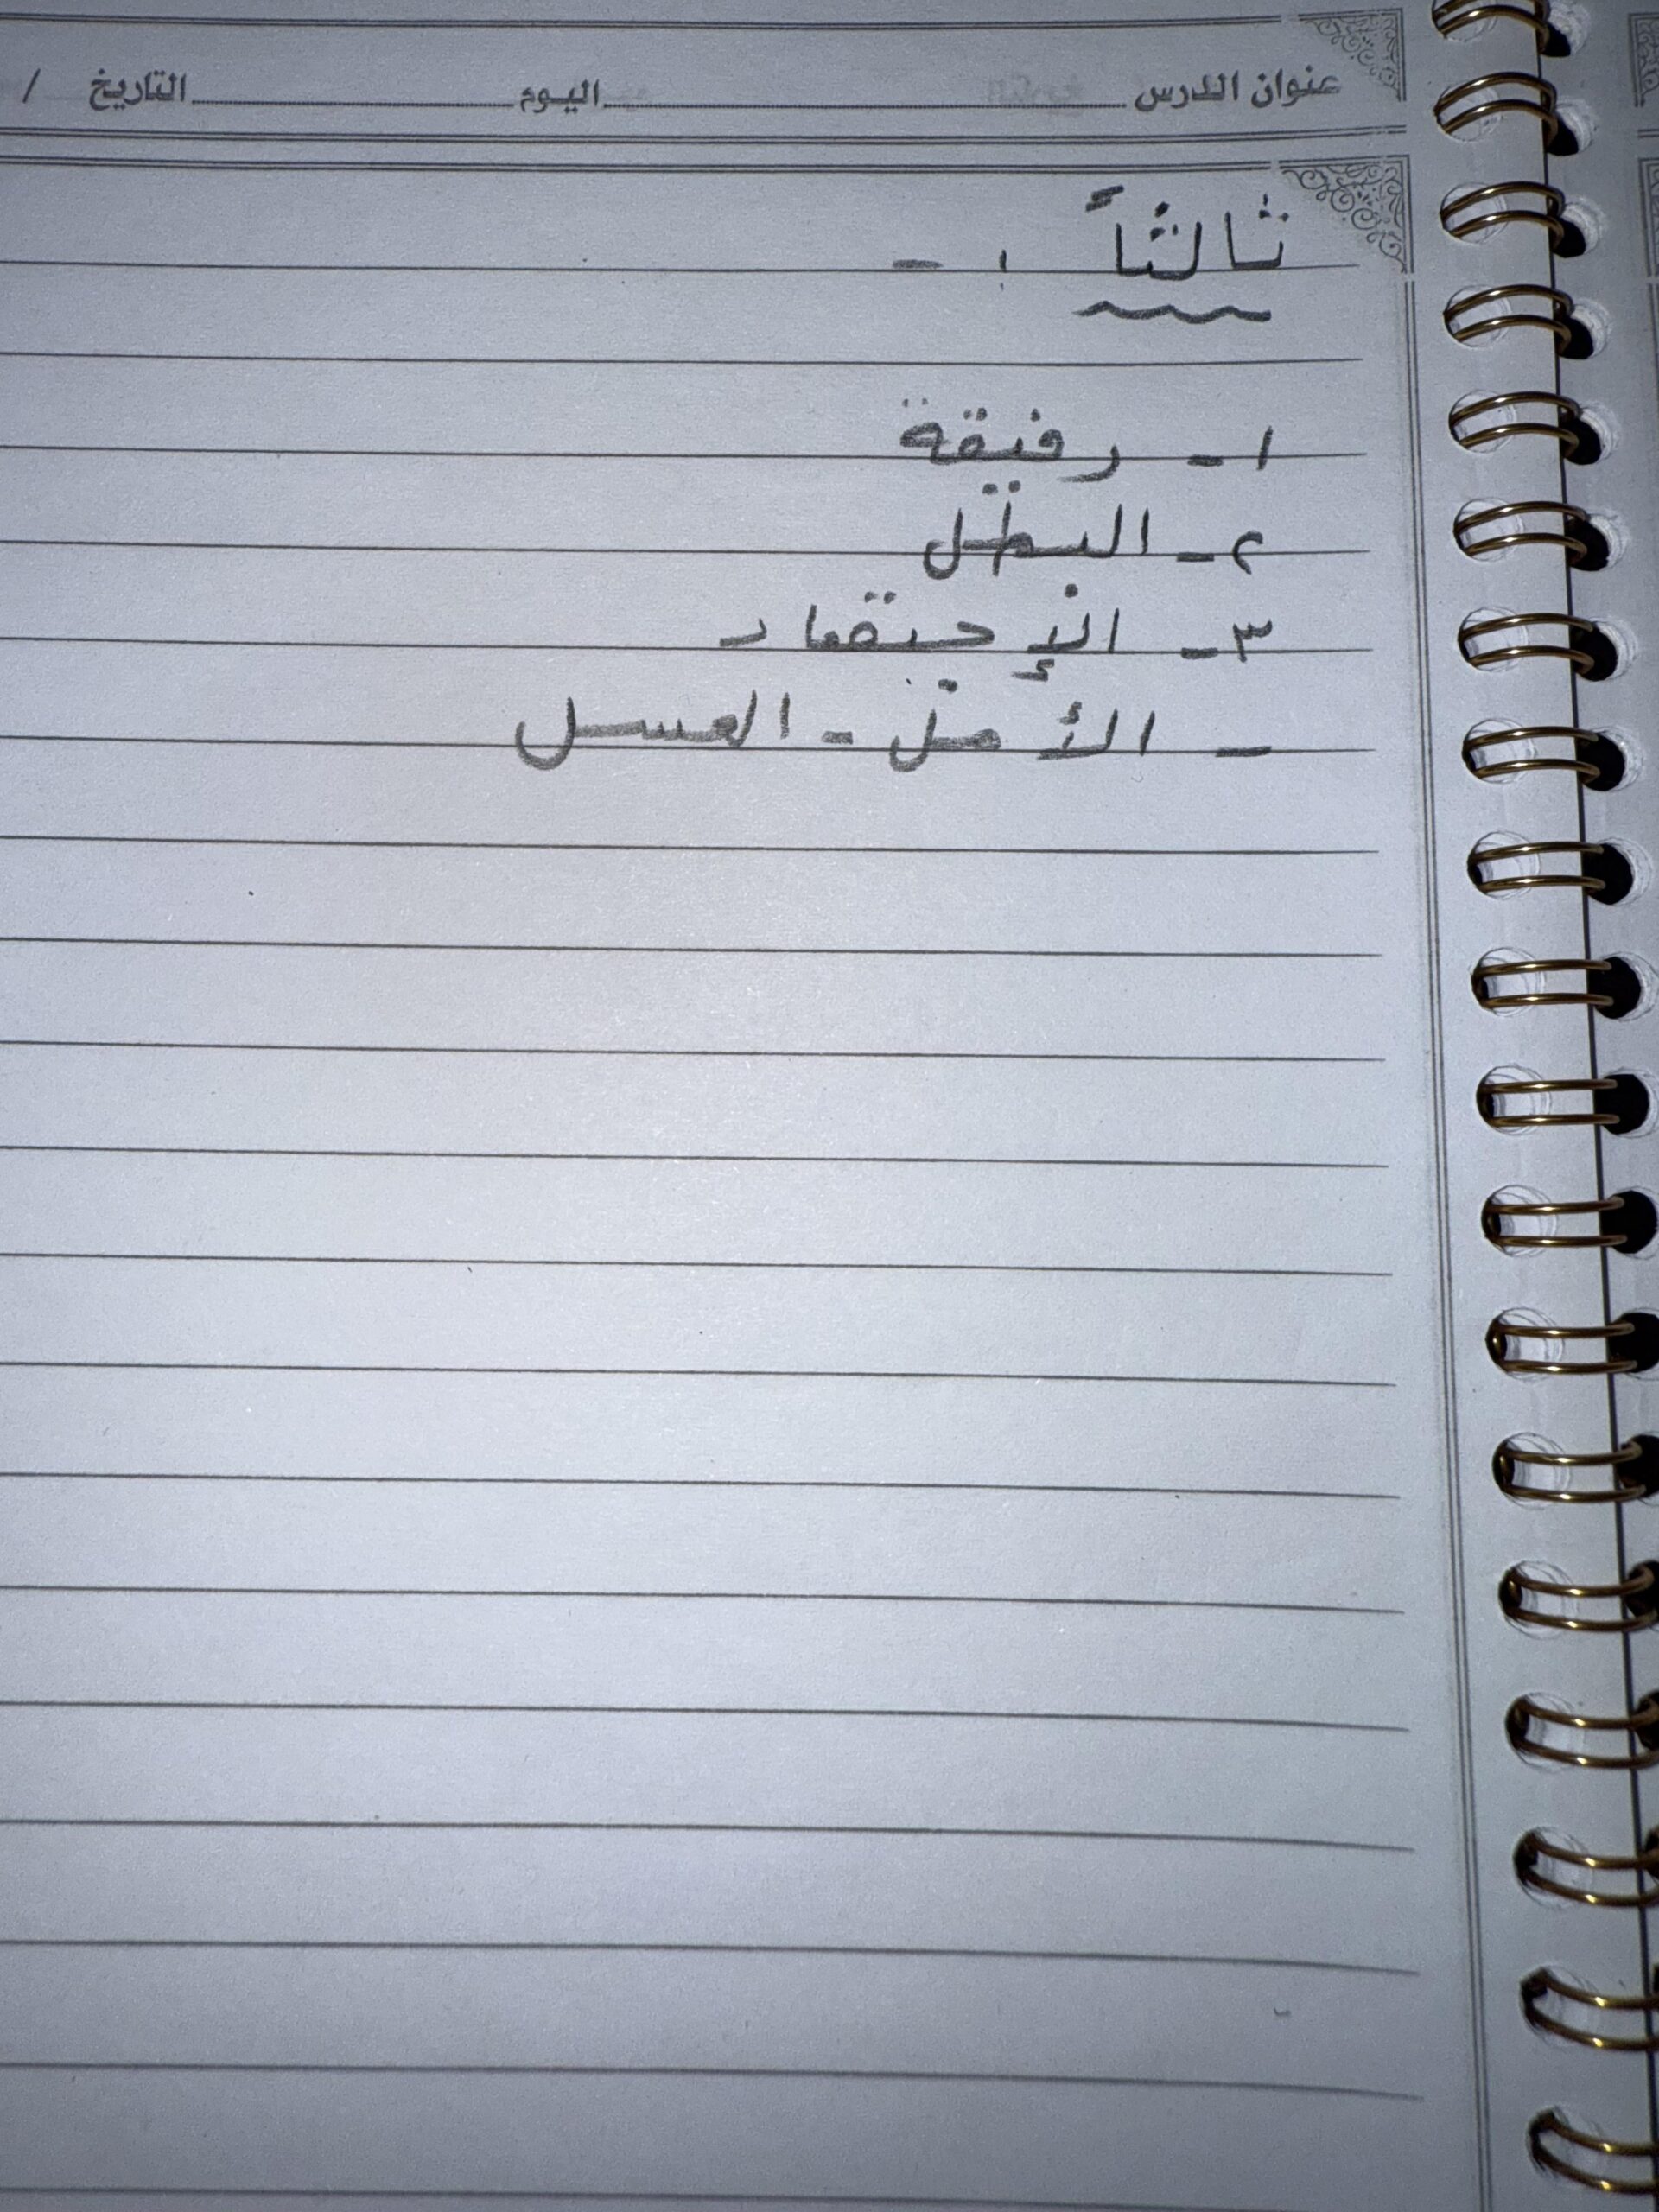 عنوان الدرس اليوم التاريخ /
ثالثاً :-
١- رفيقة
٢- البطل
٣-
- الأمل - العسل